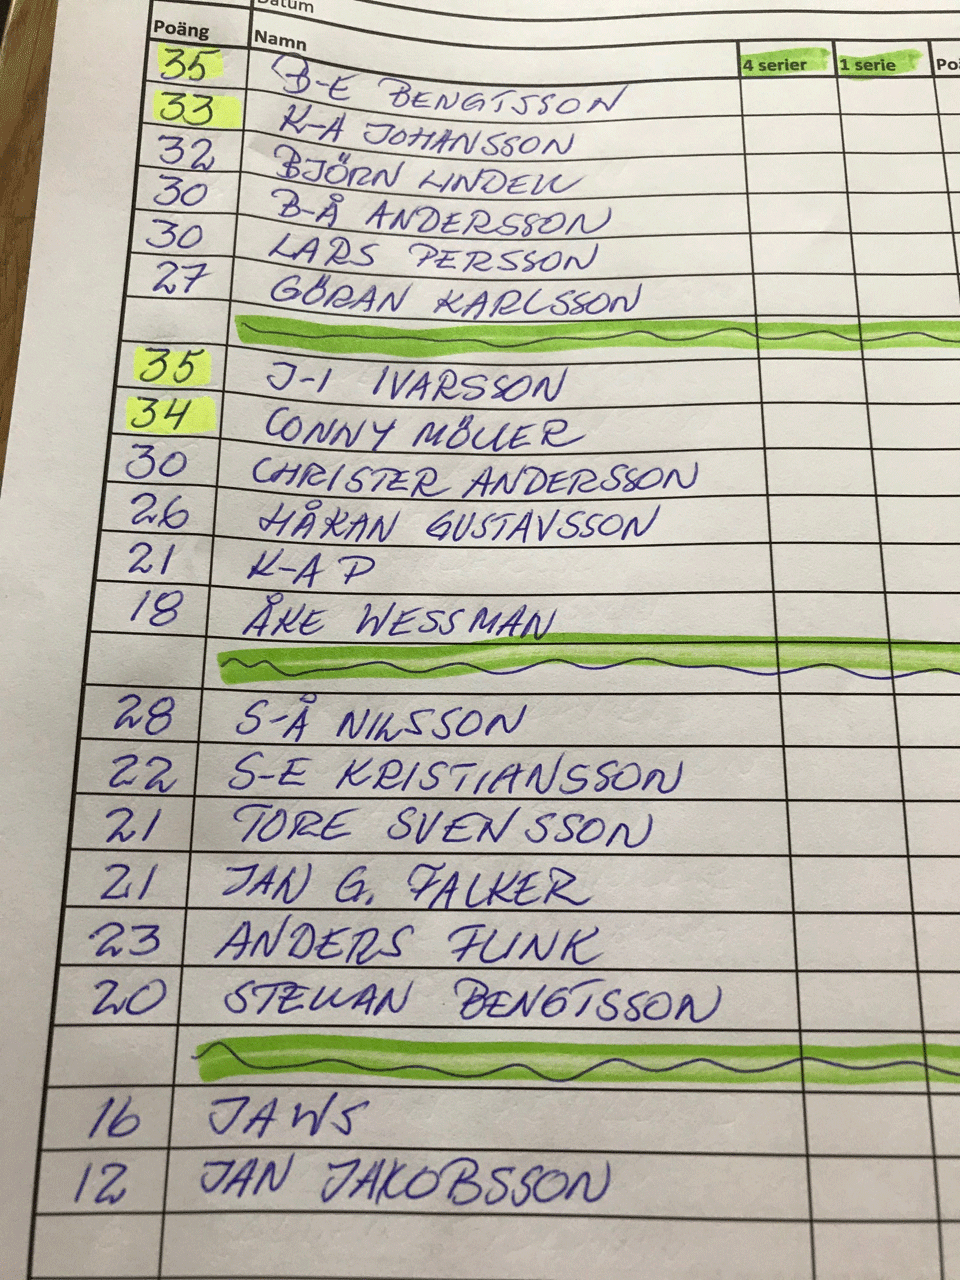 Datum
Poäng Namn 4 serier 1 serie Po
35 B-E BENGTSSON
33 K-A JOHANSSON
32 BJÖRN LINDELL
30 B-Å ANDERSSON
30 LARS PERSSON
27 GÖRAN KARLSSON
35 J-I IVARSSON
34 CONNY MÖLLER
30 CHRISTER ANDERSSON
26 HÅKAN GUSTAVSSON
21 K-A P
18 ÅKE WESSMAN
28 S-Å NILSSON
22 S-E KRISTIANSSON
21 TORE SVENSSON
21 JAN G. FALKER
23 ANDERS FUNK
20 STELLAN BENGTSSON
16 JAWS
12 JAN JAKOBSSON